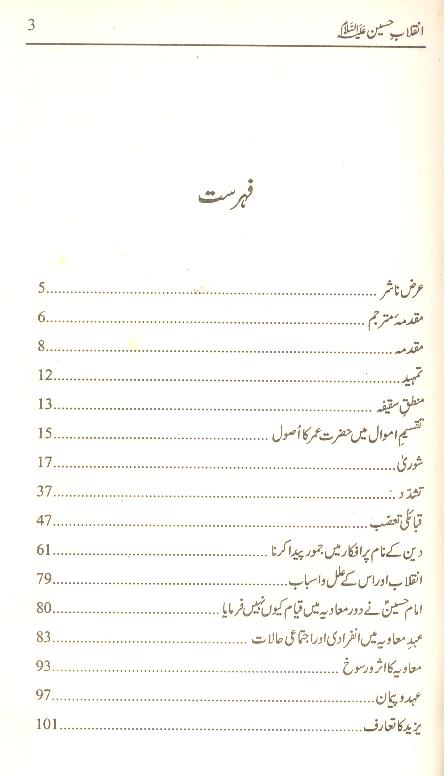 انقلابِ حسین علیہ السلام 3
فہرست
عرض ناشر ........ 5
مقدمۂ مترجم ........ 6
مقدمہ ........ 8
تمہید ........ 12
منطقِ سقیفہ ........ 13
تقسیمِ اموال میں حضرت عمر کا اُصول ........ 15
شوریٰ ........ 17
تشدّد ........ 37
قبائلی تعصّب ........ 47
دین کے نام پر افکار میں جمود پیدا کرنا ........ 61
انقلاب اور اس کے علل و اسباب ........ 79
امام حسینؑ نے دورِ معاویہ میں قیام کیوں نہیں فرمایا ........ 80
عہدِ معاویہ میں انفرادی اور اجتماعی حالات ........ 83
معاویہ کا اثر و رسوخ ........ 93
عہد و پیمان ........ 97
یزید کا تعارف ........ 101